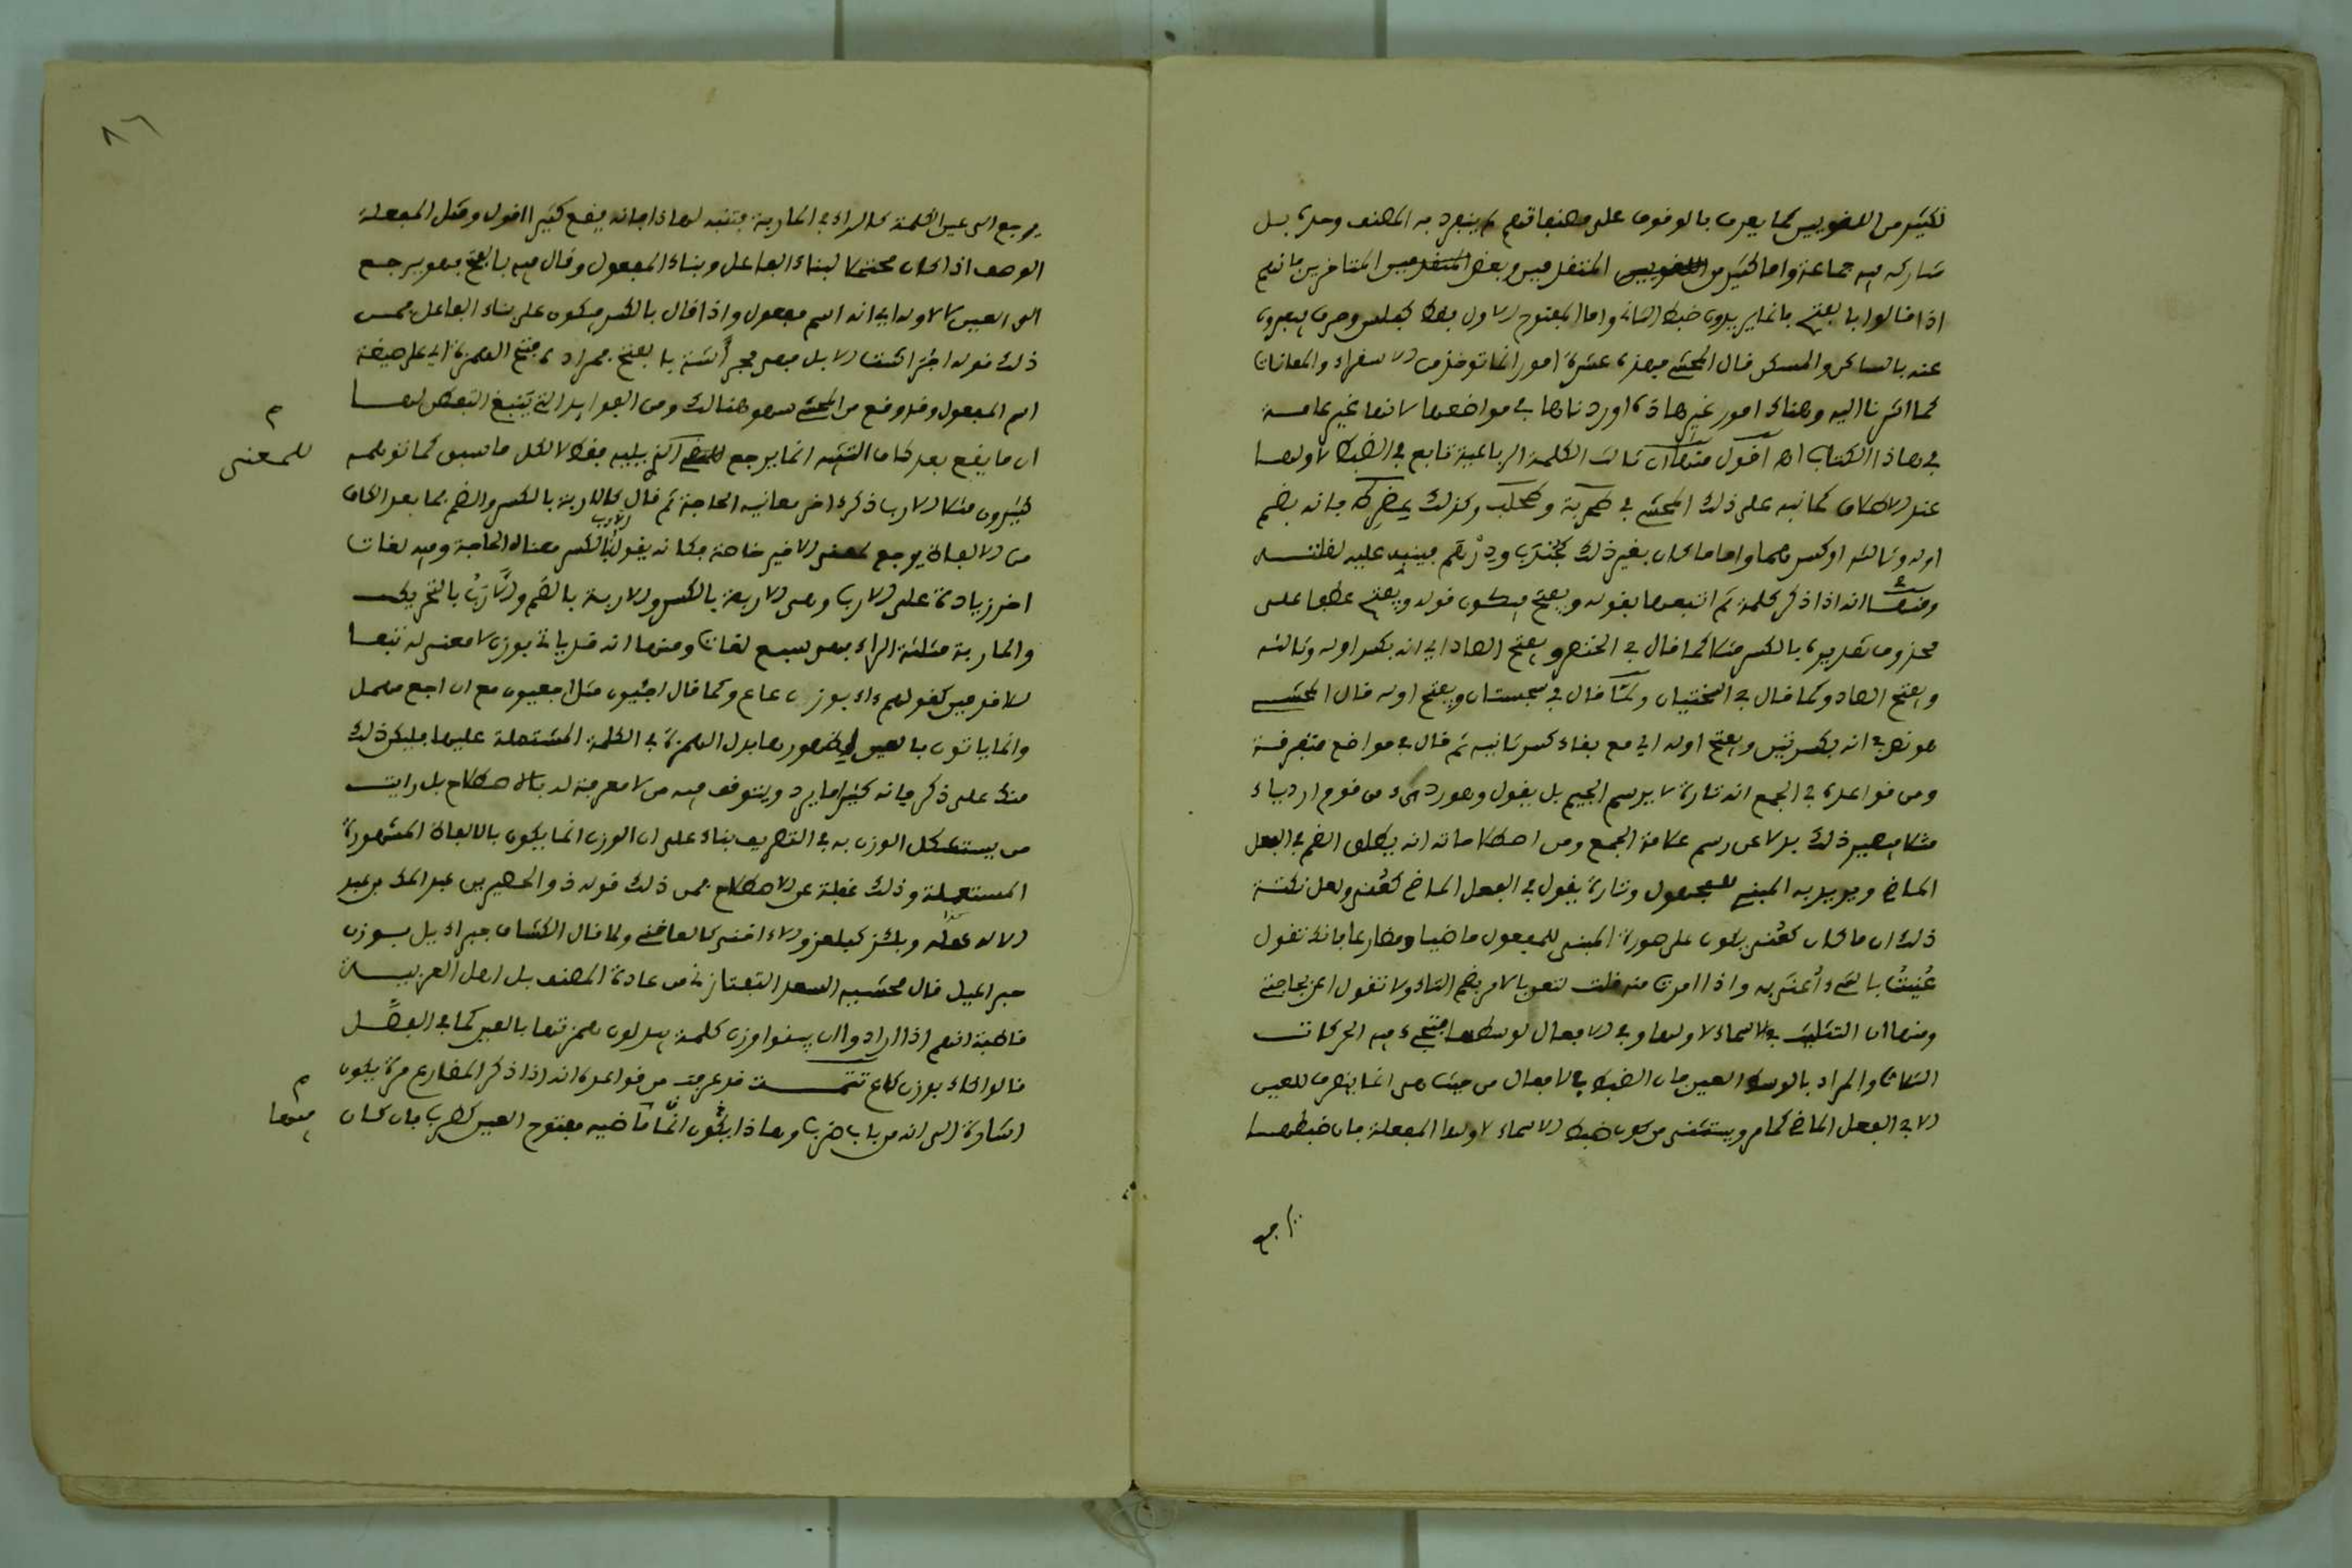 لكثير من اللغويين كما يعرف بالوقوف على مصنفاتهم لم ينفرد به المصنف وحده بل
شاركه فيه جماعة واما كثير من اللغويين المتقدمين وبعض المتاخرين فانهم
اذا قالوا بالفتح فانما يريدون ضبط الثاني واما المفتوح الاول فقط كفلس وحرف فيعبرون
عنه بالساكن والمسكن قال المحشي فهذه عشرة امور انما توخذ من الاستقراء والمعاناة
كما اشرنا اليه وهناك امور غير هاذه اوردناها في مواضعها لانها غير عامة
في هاذا الكتاب اه اقول منها ان ثالث الكلمة الرباعية تابع في الضبط لاولها
عند الاطلاق كما نبه على ذلك المحشي في وكذلك فانه بضم
اوله وثالثه او كسرهما واما ما كان بغير ذلك كجندب ودرهم فينبه عليه
ومنها انه اذا ذكر كلمة ثم اتبعها بقوله وبفتح فيكون قوله وبفتح عطفا على
محذوف تقديره بالكسر مثلا كما قال في الخنصر وبفتح الصاد اي انه بكسر اوله وثالثه
وبفتح الصاد وكما قال في السختيان وكما قال في سجستان وبفتح اوله قال المحشي
هو نص في انه بكسرتين وبفتح اوله اي مع بقاء كسر ثانيه ثم قال في مواضع متفرقة
ومن قواعده في الجمع انه تارة لا يرسم الجيم بل يقول وهو ردىء من قوم اردياء
مثلا فيصير ذلك بدلا عن رسم علامة الجمع ومن اصطلاحاته انه يطلق الضم في الفعل
الماضي ويريد به المبني للمجهول وتارة يقول في الفعل الماضي كعني ولعل نكتة
ذلك ان ما كان كعني يكون على صورة المبني للمفعول ماضيا ومضارعا فانك تقول
عنيت بالشيء أعنى به واذا امرت منه قلت لتعن بالامر بضم التاء ولا تقول اعن بحاجتي
ومنها ان التثليث في الاسماء لاولها وفي الافعال لوسطها فتجيء فيه الحركات
الثلاث والمراد بالوسط العين فان الضبط في الافعال من حيث هي انما ينصرف للعين
الا في الفعل الماضي كما مر ويستثنى من كون ضبط الاسماء لاولها المفعلة فان ضبطها
يرجع الى عين الكلمة كالراء في المأربة فتنبه لهاذا فانه يقع كثيرا اقول ومثل المفعلة
الوصف اذا كان محتملا لبناء الفاعل وبناء المفعول وقال فيه بالفتح فهو يرجع
الى العين لا لاوله اي انه اسم مفعول واذا قال بالكسر فيكون على بناء الفاعل فمن
ذلك قوله اجتزأت الابل فهي مجزأة بالفتح فمراده فتح الهمزة اي على صيغة
اسم المفعول وقد وقع من المحشي سهو هنالك ومن الفوائد التي ينبغي التفطن لها
ان ما يقع بعد كاف التشبيه انما يرجع للمعنى الذي يليه فقط لا لكل ما سبق كما توهمه
كثيرون مثلا الارب ذكر اخر معانيه الحاجة ثم قال كالاربة بالكسر والضم فما بعد الكاف
من الالفاظ يرجع لمعنى الاخير خاصة فكانه يقول الارب بالكسر معناه الحاجة وفيه لغات
اخر زيادة على الارب وهي الاربة بالكسر والاربة بالضم والارب بالتحريك
والماربة مثلثة الراء فهي سبع لغات ومنها انه قد ياتي بوزن لا معنى له تبعا
للاقدمين كقولهم داء بوزن عاع وكما قال اجئيون مثل اجعيون مع ان اجع مهمل
وانما ياتون بالعين لظهورها بدل الهمزة في الكلمة المشتملة عليها فليكن ذلك
منك على ذكر فانه كثيرا ما يرد ويتوقف فيه من لا معرفة له بالاصطلاح بل رايت
من يستشكل الوزن به في التصريف بناء على ان الوزن انما يكون بالالفاظ المشهورة
المستعملة وذلك غفلة عن الاصطلاح فمن ذلك قوله ذو الحصير بن عبد الملك بن عبد
ولما قال الكشاف جبراءيل بوزن
جبراعيل قال محشيه السعد التفتازاني من عادة المصنف بل اهل العربية
قاطبة انهم اذا ارادوا ان يبينوا وزن كلمة يبدلون همزتها بالعين كما في المفصل
قالوا كاء بوزن كاع تتمت قد عرفت من قواعده انه اذا ذكر المضارع مرة يكون
اشارة الى انه من باب ضرب وهاذا يكون انما ماضيه مفتوح العين كضرب فان كان
للمعنى
منها
٨٦